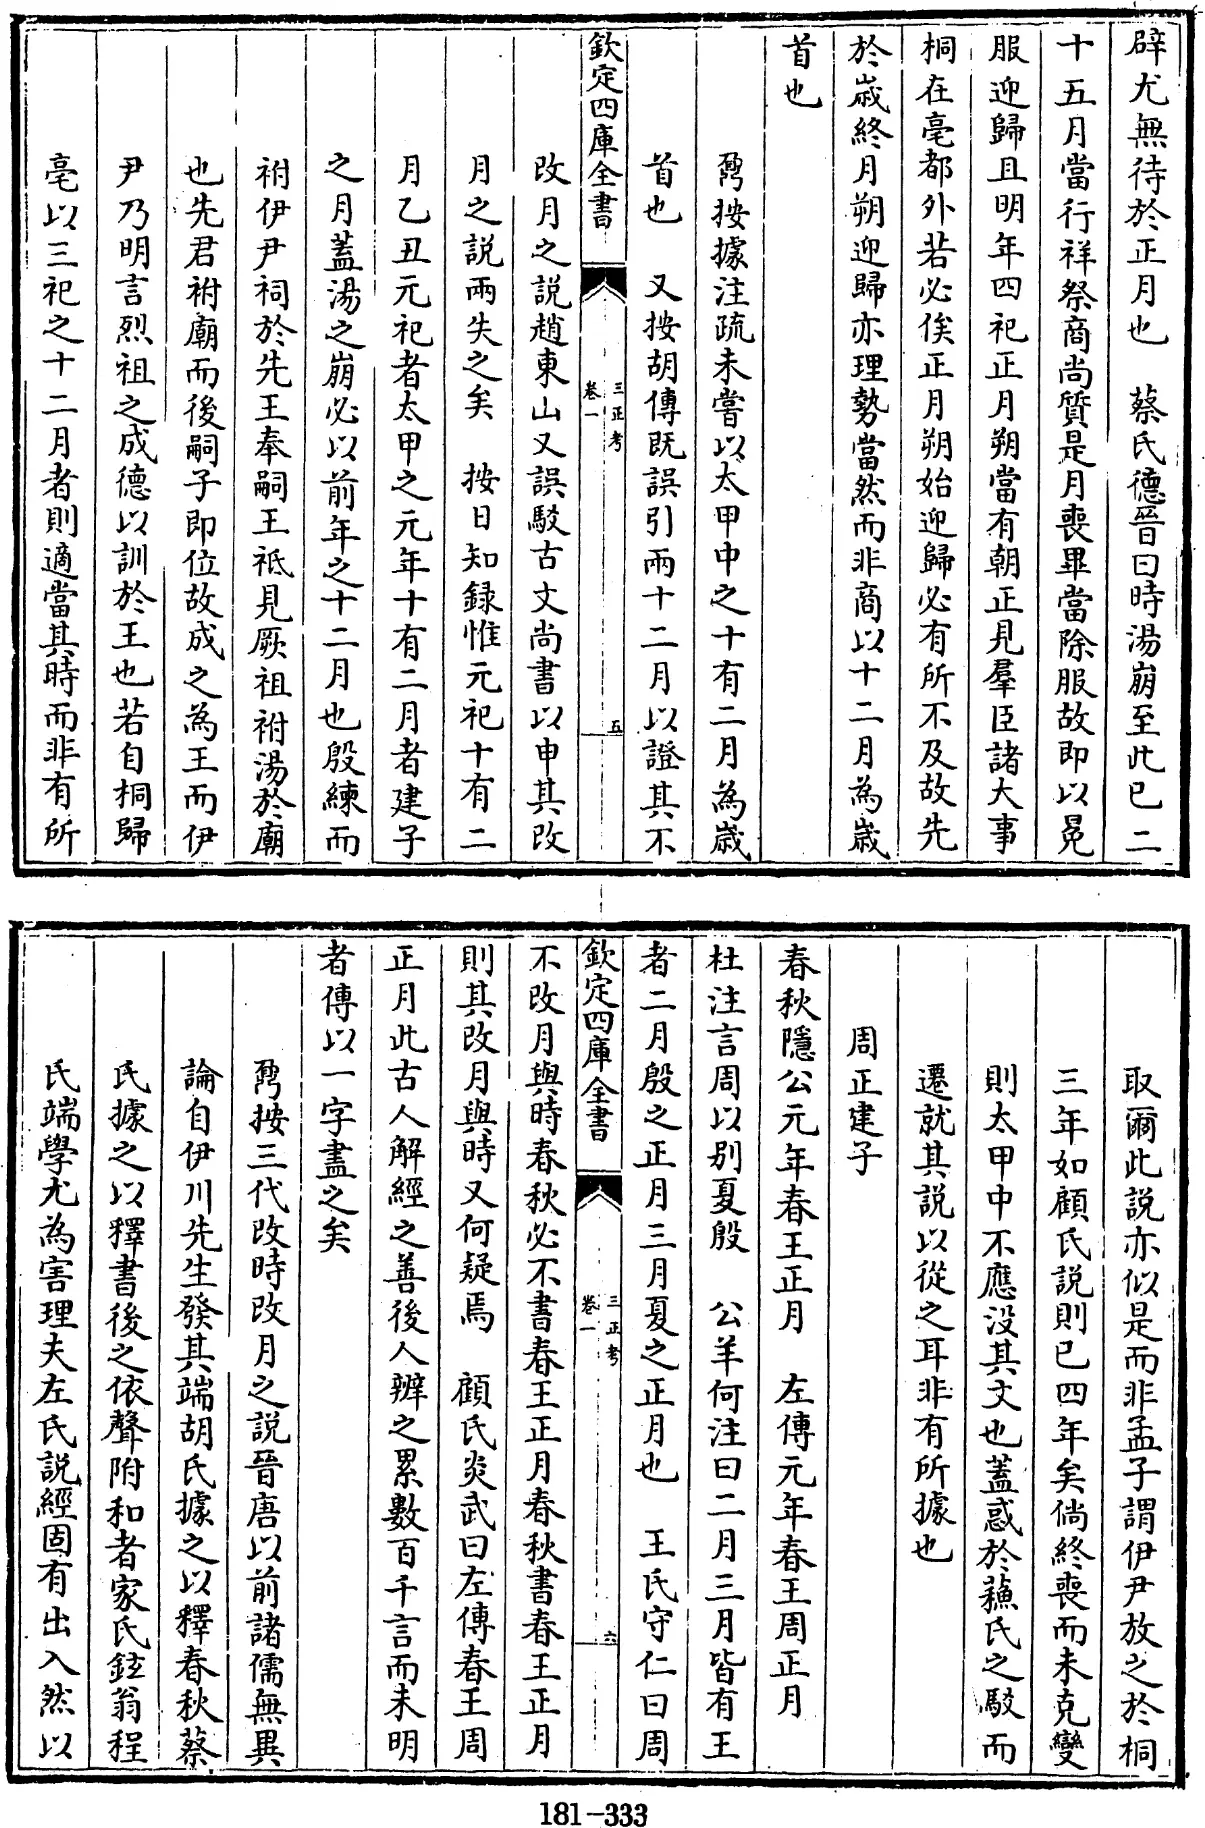 辟尤無待於正月也　蔡氏德晉曰時湯崩至此已二
十五月當行祥祭商尚質是月喪畢當除服故即以冕
服迎歸且明年四祀正月朔當有朝正見羣臣諸大事
桐在亳都外若必俟正月朔始迎歸必有所不及故先
於歲終月朔迎歸亦理勢當然而非商以十二月為歲
首也
鼐按據注疏未嘗以太甲中之十有二月為歲
首也　又按胡傳既誤引兩十二月以證其不
欽定四庫全書
三正考
卷一
五
改月之說趙東山又誤駁古文尚書以申其改
月之說兩失之矣　按日知録惟元祀十有二
月乙丑元祀者太甲之元年十有二月者建子
之月蓋湯之崩必以前年之十二月也殷練而
祔伊尹祠於先王奉嗣王祗見厥祖祔湯於廟
也先君祔廟而後嗣子即位故成之為王而伊
尹乃明言烈祖之成德以訓於王也若自桐歸
亳以三祀之十二月者則適當其時而非有所
取爾此說亦似是而非孟子謂伊尹放之於桐
三年如顧氏說則已四年矣倘終喪而未克變
則太甲中不應没其文也蓋惑於蘓氏之駁而
遷就其說以從之耳非有所據也
周正建子
春秋隱公元年春王正月　左傳元年春王周正月
杜注言周以別夏殷　公羊何注曰二月三月皆有王
者二月殷之正月三月夏之正月也　王氏守仁曰周
欽定四庫全書
三正考
卷一
六
不改月與時春秋必不書春王正月春秋書春王正月
則其改月與時又何疑焉　顧氏炎武曰左傳春王周
正月此古人解經之善後人辨之累數百千言而未明
者傳以一字盡之矣
鼐按三代改時改月之說晉唐以前諸儒無異
論自伊川先生發其端胡氏據之以釋春秋蔡
氏據之以釋書後之依聲附和者家氏鉉翁程
氏端學尤為害理夫左氏說經固有出入然以
181-333